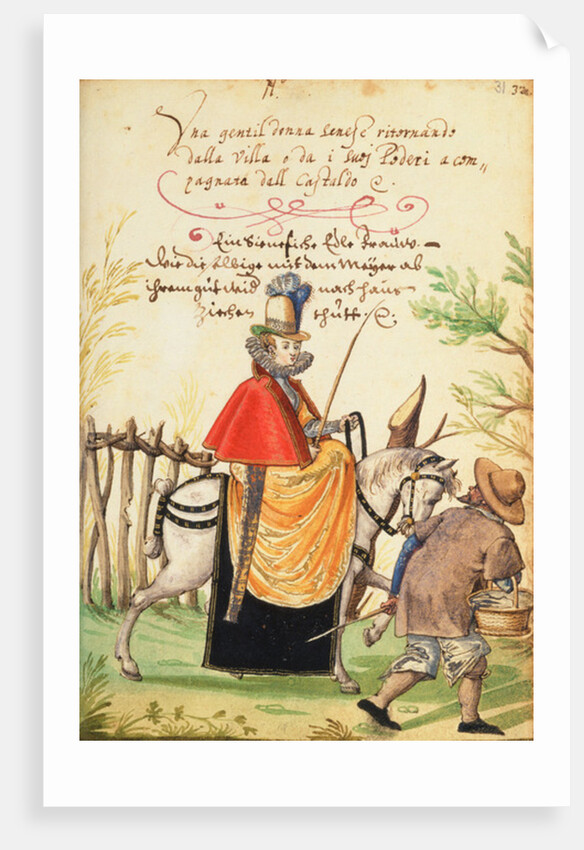 H.
31 32
Una gentil donna senese ritornando
dalla Villa o da i suoj Poderi acom=
pagnata dall Castaldo &.
Ein Sienesische Edle Frauw.
Wie die selbige mit dem Mayer ab
ihrem gut und nach haus
Ziehen thutt. &.